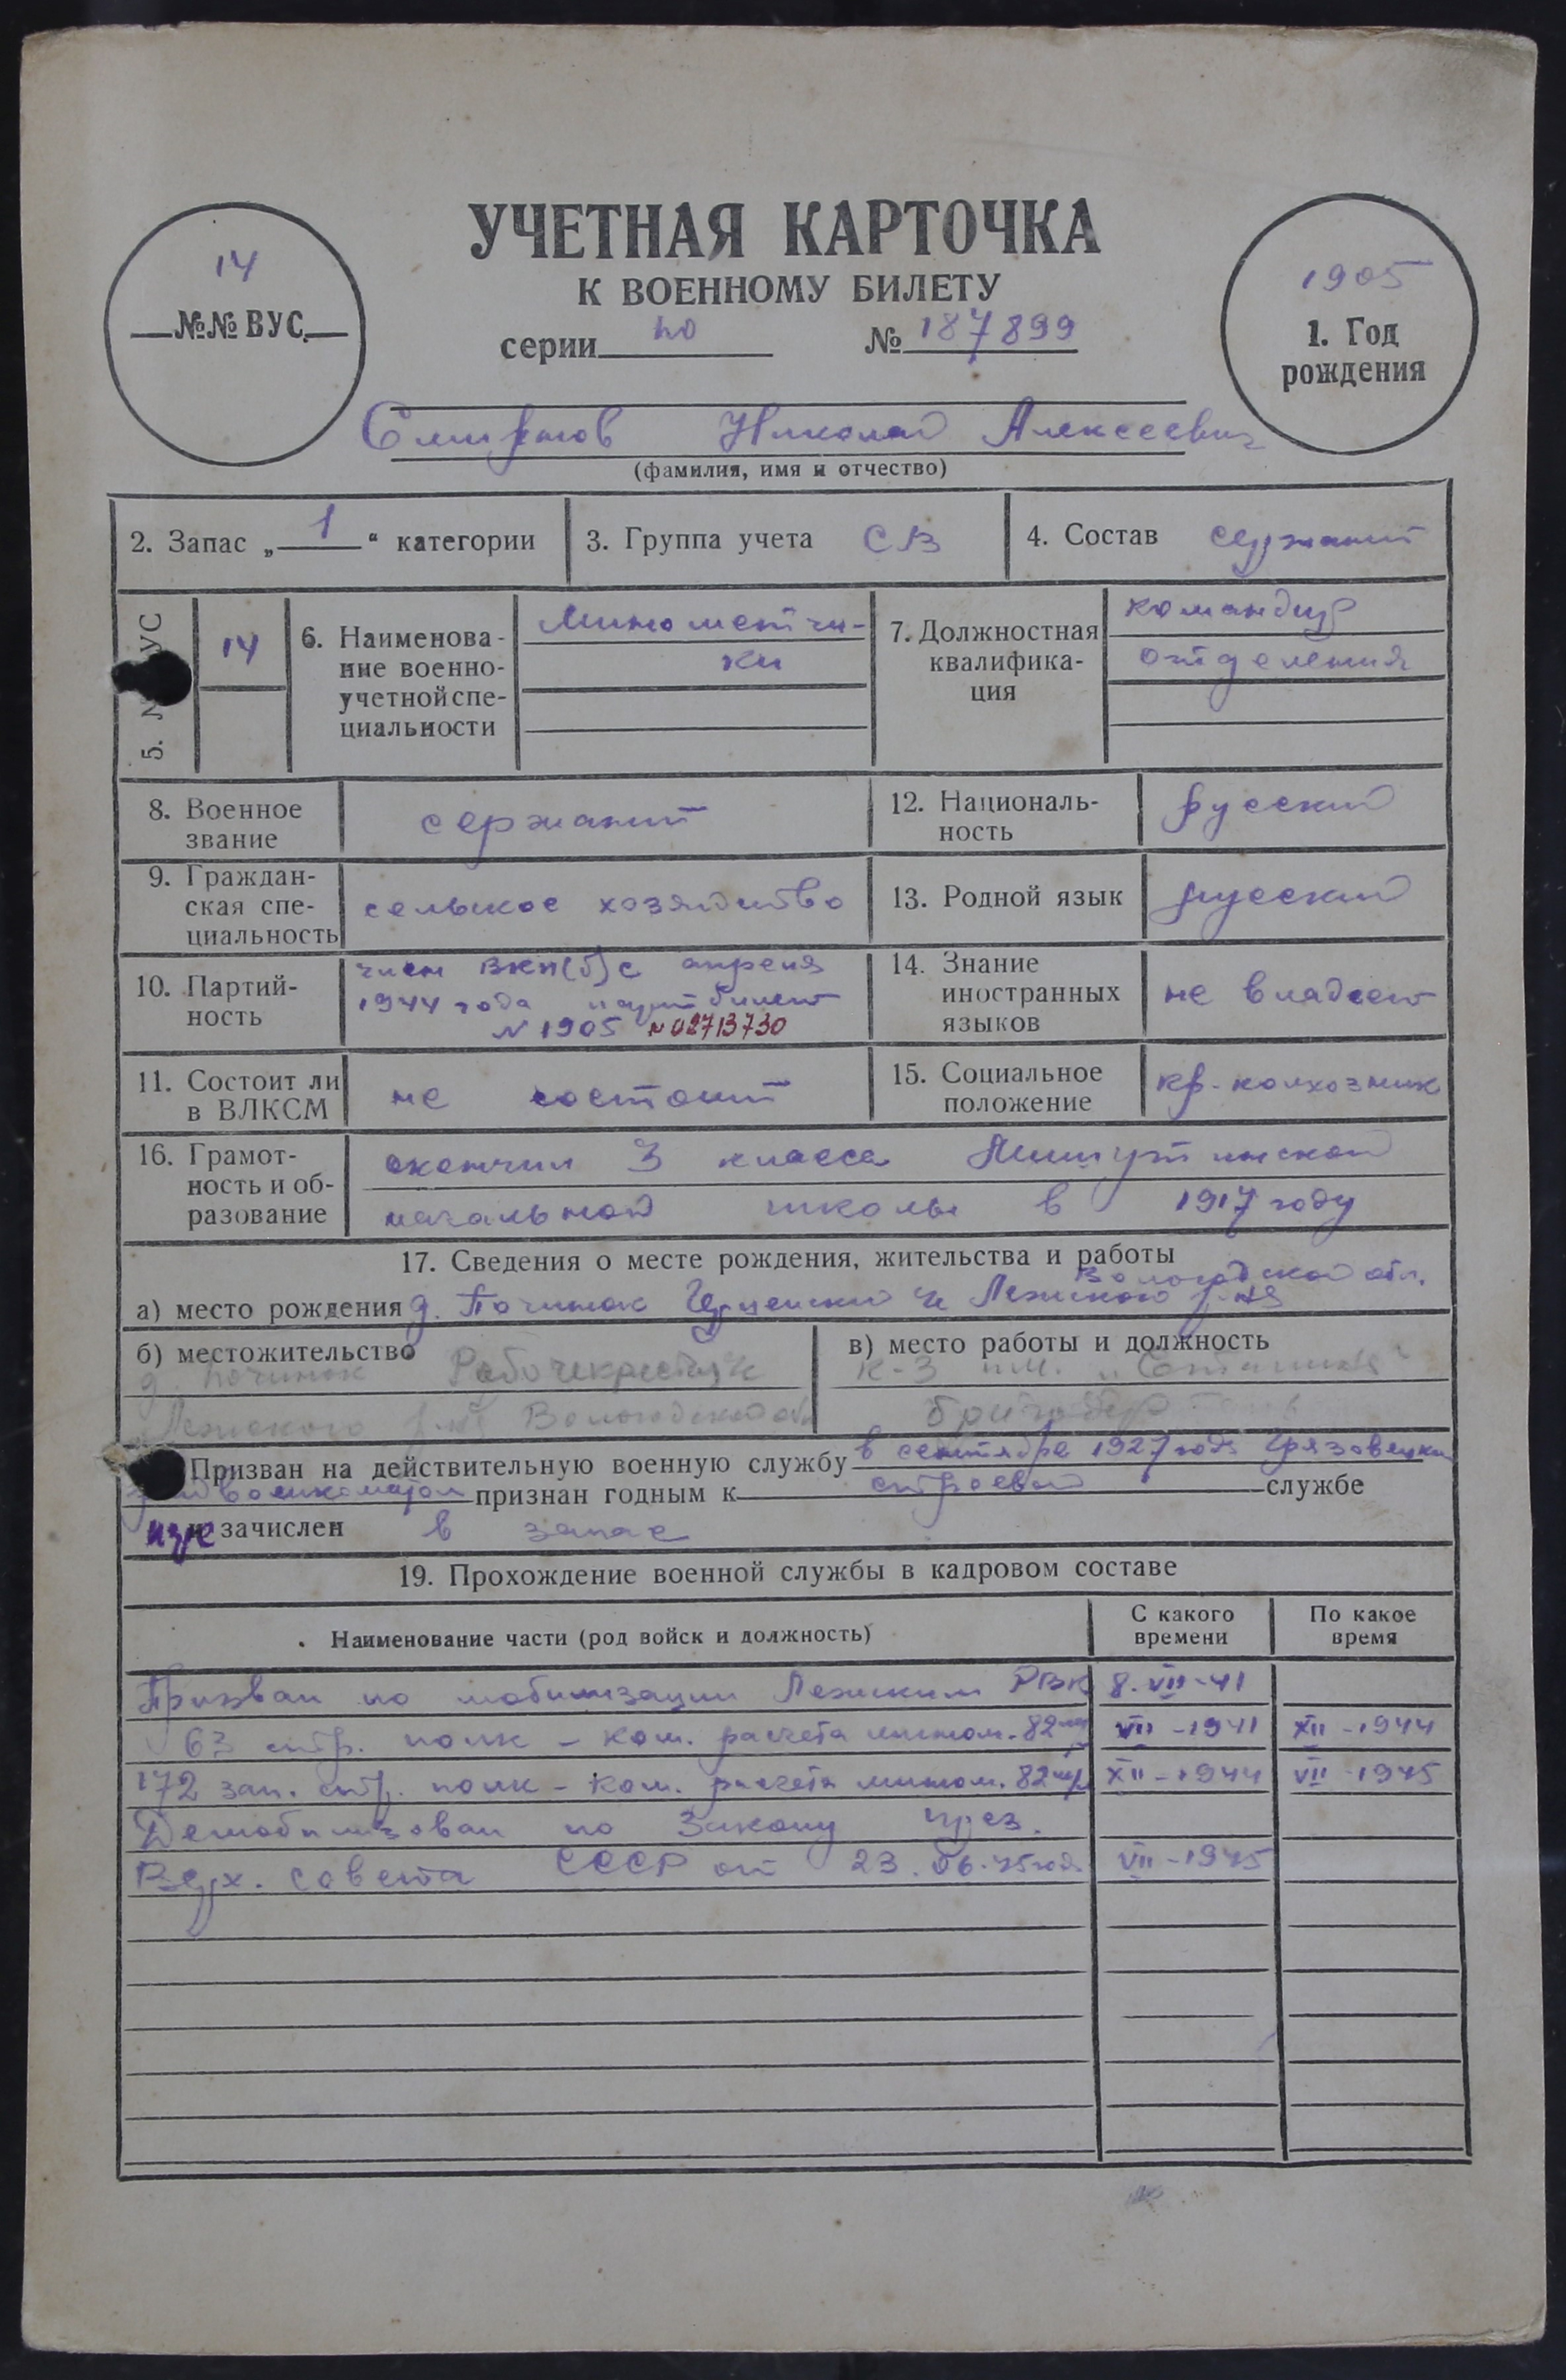 УЧЕТНАЯ КАРТОЧКА
К ВОЕННОМУ БИЛЕТУ
серии по № 187899
14
№№ ВУС.
1905
1. Год
рождения
Смирнов Николай Алексеевич
(фамилия, имя и отчество)
2. Запас „ 1 “ категории
3. Группа учета СВ
4. Состав сержант
5. № ВУС 14
6. Наименова-
ние военно-
учетной спе-
циальности
Минометчи-
ки
7. Должностная
квалифика-
ция
командир
отделения
8. Военное
звание
сержант
12. Националь-
ность
русский
9. Граждан-
ская спе-
циальность
сельское хозяйство
13. Родной язык русский
10. Партий-
ность
член ВКП(б) с апреля
1944 года партбилет
N 1905 N 02713730
14. Знание
иностранных
языков
не владеет
11. Состоит ли
в ВЛКСМ
не состоит
15. Социальное
положение
кр-колхозник
16. Грамот-
ность и об-
разование
окончил 3 класса
начальной школы в 1917 году
17. Сведения о месте рождения, жительства и работы
Вологодской обл.
а) место рождения д. Починок Лежского р-на
б) местожительство
д. Починок
Лежского р-на Вологодской обл
в) место работы и должность
к-з им. „Сталина“
бригадир
Призван на действительную военную службу в сентябре 1927 года Грязовецким
рай военкоматом признан годным к строевой службе
и зачислен в запас
19. Прохождение военной службы в кадровом составе
Наименование части (род войск и должность)
С какого
времени
По какое
время
Призван по мобилизации Лежским РВК 8.VII-41
63 стр. полк - ком. расчета мином. 82 мм VII-1941 XII-1944
172 зап. стр. полк - ком. расчета мином. 82 мм XII-1944 VII-1945
Демобилизован по Закону през.
Верх. Совета СССР от 23.06.45 года VII-1945